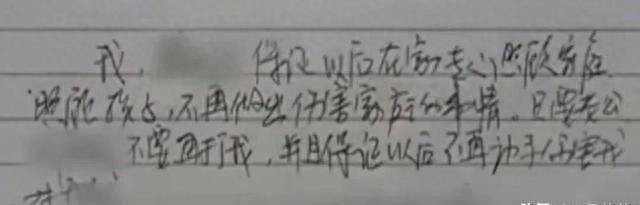 我, 保证以后在家专心照顾家庭
照顾孩子,不再做出伤害家庭的事情。只要老公
不要再打我,并且保证以后不再动手伤害我